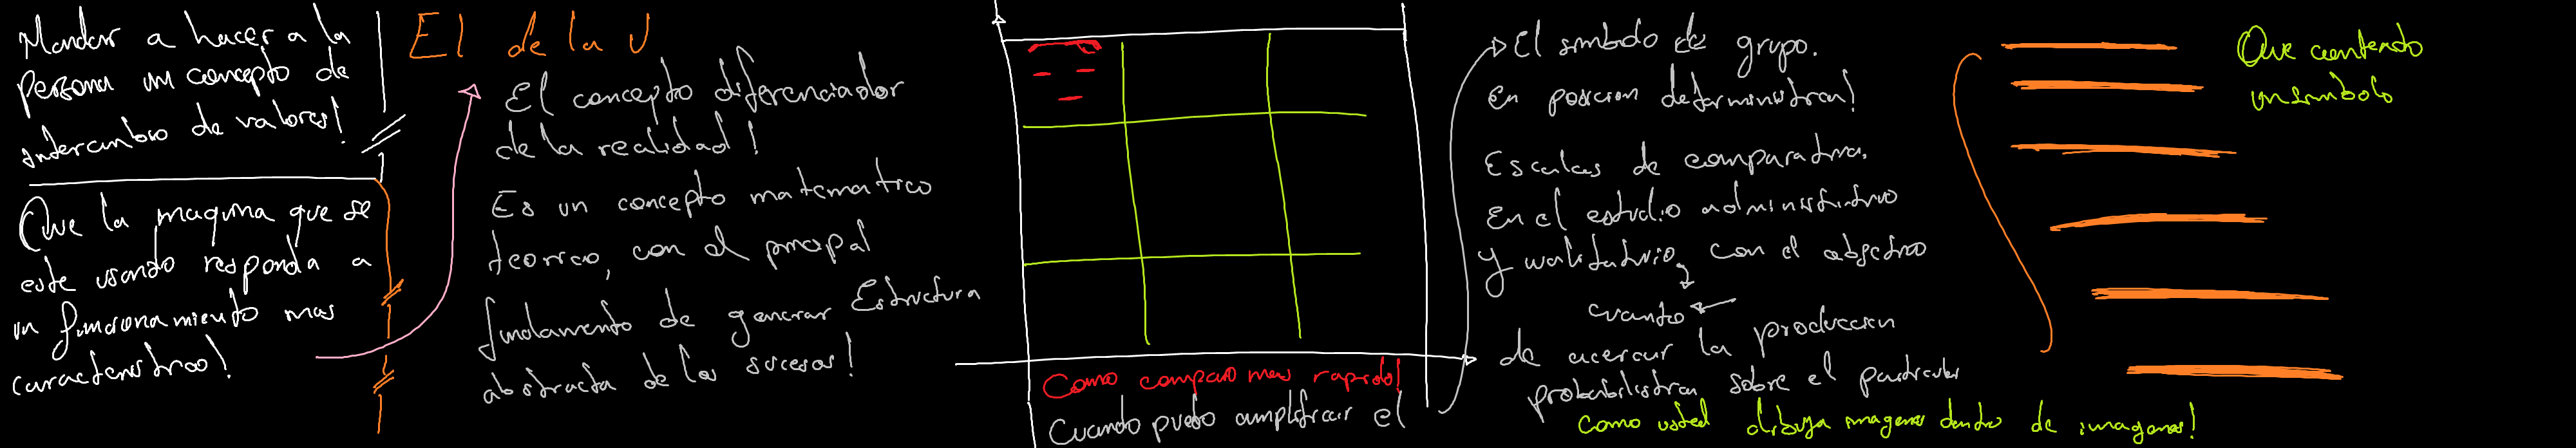 Mandar a hacer a la
persona un concepto de
intercambio de valores!
Que la maquina que se
este usando responda a
un funcionamiento mas
caracteristico!
El de la U
El concepto diferenciador
de la realidad!
Es un concepto matematico
teorico, con el principal
fundamento de generar Estructura
abstracta de los sucesos!
Como comparo mas rapido!
Cuando puedo amplificar el
El simbolo de grupo.
En posicion deterministica!
Escalas de comparativa.
En el estudio administrativo
y cualitativo, con el objetivo
cuanto
de acercar la produccion
probabilistica sobre el particular
Como usted dibuja imagenes dentro de imagenes!
Que contendo
un simbolo